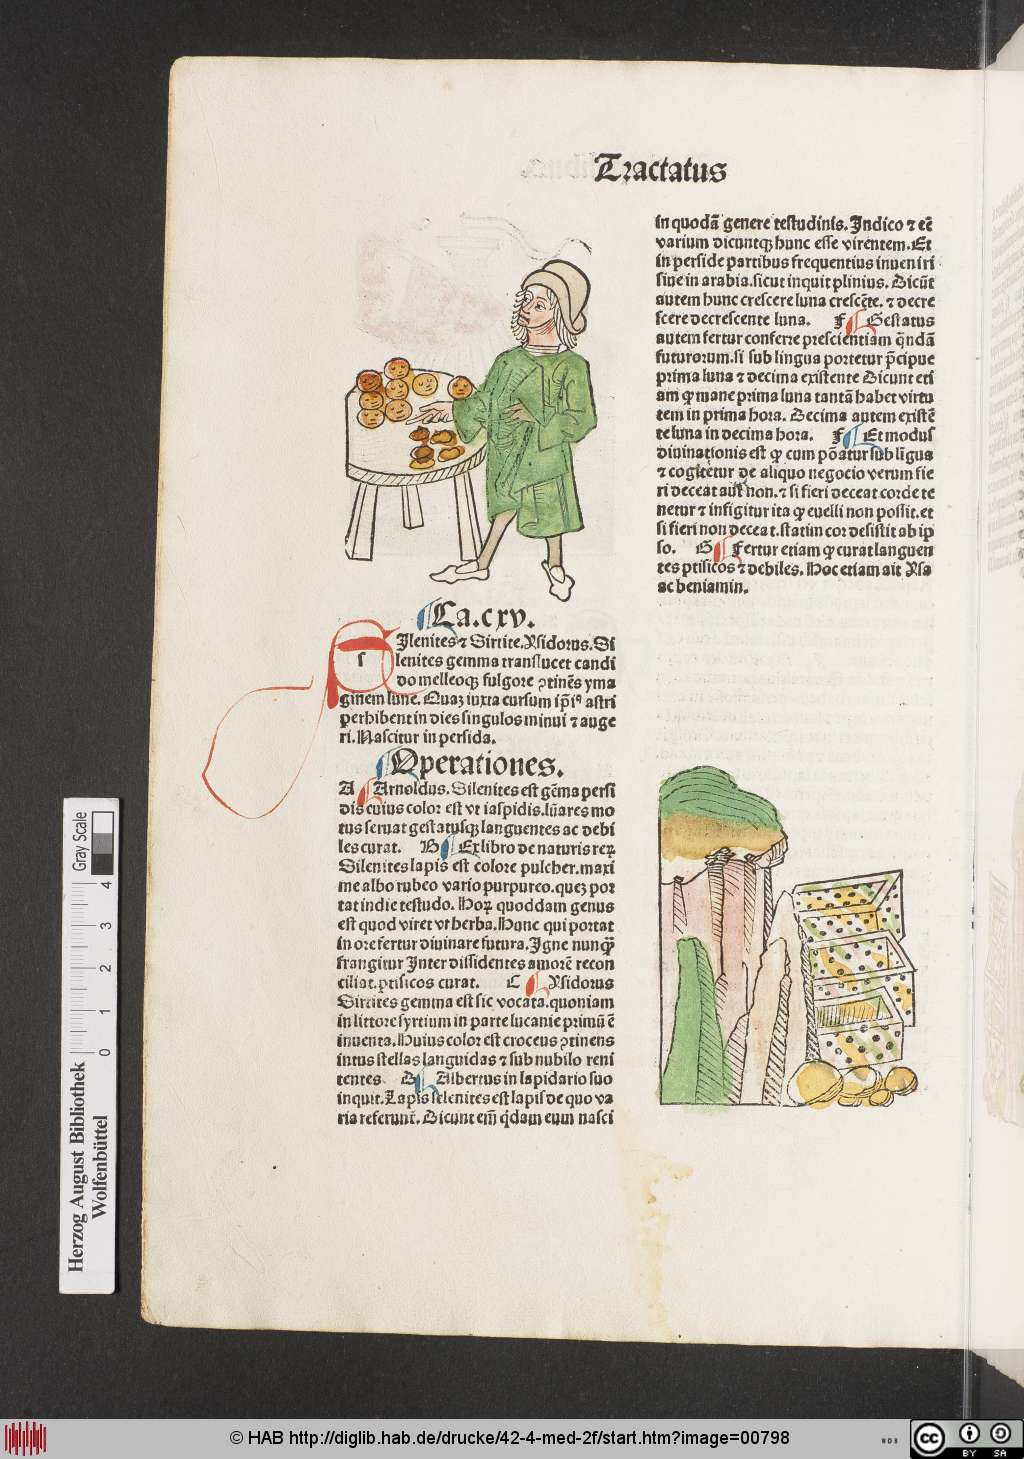 Tractatus
Ca.cxv.
s
Ilenites ⁊ Sirtite.Ysidorus.Si
lenites gemma translucet candi
do melleoqꝫ fulgore ꝯtinēs yma
ginem lune. Quaꝫ iuxta cursum ip̄iꝰ astri
perhibent in dies singulos minui ⁊ auge
ri.Nascitur in persida.
Operationes.
A Arnoldus. Silenites est gēma persi
dis cuius color est vt iaspidis.lūares mo
tus seruat gestatusqꝫ languentes ac debi
les curat. B Ex libro de naturis reꝝ
Silenites lapis est colore pulcher.maxi
me albo rubeo vario purpureo.queꝫ por
tat indie testudo. Hoꝝ quoddam genus
est quod viret vt herba. Hunc qui portat
in ore fertur diuinare futura. Igne nunqꝫ̄
frangitur Inter dissidentes amorē recon
ciliat.ptisicos curat. C Ysidorus
Sirtites gemma est sic vocata.quoniam
in littore syrtium in parte lucanie primū ē
inuenta. Huius color est croceus ꝯtinens
intus stellas languidas ⁊ sub nubilo reni
tentes D Albertus in lapidario suo
inquit.Lapis selenites est lapis de quo va
ria referunt̄. Dicunt em̄ q̄dam eum nasci
in quodā genere testudinis. Indico ⁊ eē
varium dicuntqꝫ hunc esse virentem. Et
in perside partibus frequentius inueniri
siue in arabia.sicut inquit plinius. Dicūt
autem hunc crescere luna crescēte. ⁊ decre
scere decrescente luna. E Gestatus
autem fertur conferre prescientiam q̄ndā
futurorum.si sub lingua portetur p̄cipue
prima luna ⁊ decima existente Dicunt eti
am ꝙ mane prima luna tantā habet virtu
tem in prima hora. Decima autem existē
te luna in decima hora. F Et modus
diuinationis est ꝙ cum pōatur sub līgua
⁊ cogitetur de aliquo negocio verum fie
ri deceat aut non. ⁊ si fieri deceat corde te
netur ⁊ infigitur ita ꝙ euelli non possit.et
si fieri non deceat.statim cor desistit ab ip
so. G Fertur etiam ꝙ curat languen
tes ptisicos ⁊ debiles. Hoc etiam ait Ysa
ac beniamin.
Gray Scale
0 1 2 3 4
Herzog August Bibliothek
Wolfenbüttel
© HAB http://diglib.hab.de/drucke/42-4-med-2f/start.htm?image=00798
WDB
cc
BY SA